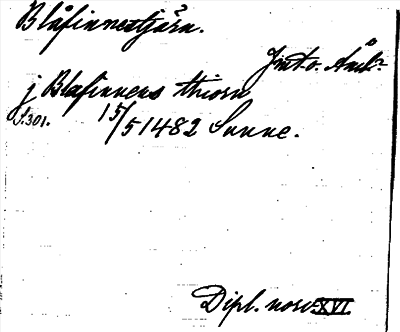 Blåfinnestjärn.
Jmt o. Ång?
j Blafinnens thiorn
S.301. 15/5 1482 Sunne.
Dipl. norv. XVI